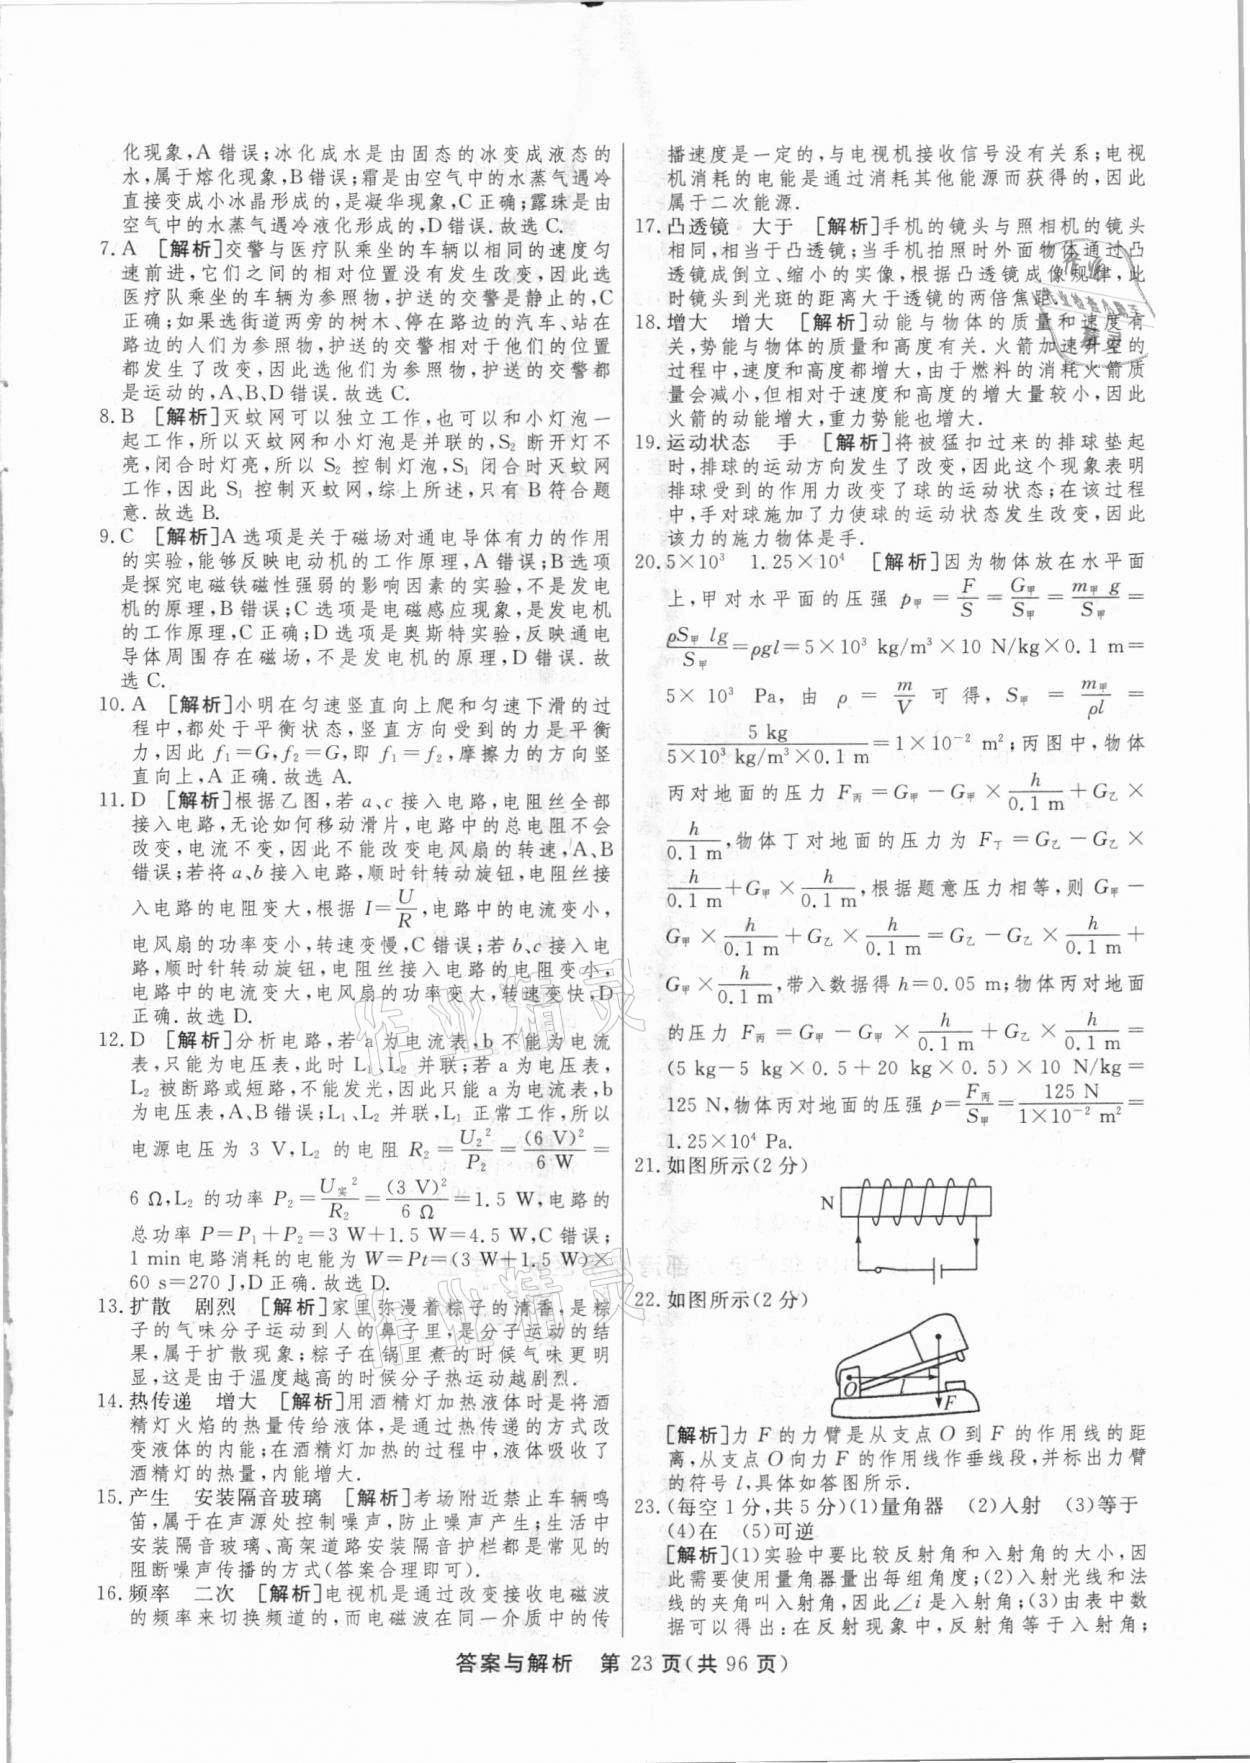 化现象,A 错误;冰化成水是由固态的冰变成液态的
水,属于熔化现象,B错误;霜是由空气中的水蒸气遇冷
直接变成小冰晶形成的,是凝华现象,C正确;露珠是由
空气中的水蒸气遇冷液化形成的,D错误.故选C.
7. A [解析]交警与医疗队乘坐的车辆以相同的速度匀
速前进,它们之间的相对位置没有发生改变,因此选
医疗队乘坐的车辆为参照物,护送的交警是静止的,C
正确;如果选街道两旁的树木、停在路边的汽车、站在
路边的人们为参照物,护送的交警相对于他们的位置
都发生了改变,因此选他们为参照物,护送的交警都
是运动的,A、B、D错误.故选C.
8. B [解析]灭蚊网可以独立工作,也可以和小灯泡一
起工作,所以灭蚊网和小灯泡是并联的,S₂ 断开灯不
亮,闭合时灯亮,所以 S₂ 控制灯泡,S₁ 闭合时灭蚊网
工作,因此 S₁ 控制灭蚊网,综上所述,只有 B符合题
意.故选 B.
9. C [解析]A选项是关于磁场对通电导体有力的作用
的实验,能够反映电动机的工作原理,A错误;B选项
是探究电磁铁磁性强弱的影响因素的实验,不是发电
机的原理,B错误;C选项是电磁感应现象,是发电机
的工作原理,C正确;D选项是奥斯特实验,反映通电
导体周围存在磁场,不是发电机的原理,D错误.故
选C.
10. A [解析]小明在匀速竖直向上爬和匀速下滑的过
程中,都处于平衡状态,竖直方向受到的力是平衡
力,因此 f₁=G,f₂=G,即 f₁=f₂,摩擦力的方向竖
直向上,A正确.故选A.
11. D [解析]根据乙图,若 a、c 接入电路,电阻丝全部
接入电路,无论如何移动滑片,电路中的总电阻不会
改变,电流不变,因此不能改变电风扇的转速,A、B
错误;若将 a、b 接入电路,顺时针转动旋钮,电阻丝接
入电路的电阻变大,根据 I=U/R,电路中的电流变小,
电风扇的功率变小,转速变慢,C错误;若 b、c 接入电
路,顺时针转动旋钮,电阻丝接入电路的电阻变小,
电路中的电流变大,电风扇的功率变大,转速变快,D
正确.故选D.
12. D [解析]分析电路,若 a为电流表,b不能为电流
表,只能为电压表,此时 L₁、L₂ 并联;若 a为电压表,
L₂ 被断路或短路,不能发光,因此只能 a为电流表,b
为电压表,A、B错误;L₁、L₂ 并联,L₁ 正常工作,所以
电源电压为 3 V,L₂ 的电阻 R₂=U₂²/P₂=(6 V)²/6 W=
6 Ω,L₂ 的功率 P₂=U实²/R₂=(3 V)²/6 Ω=1.5 W,电路的
总功率 P=P₁+P₂=3 W+1.5 W=4.5 W,C错误;
1 min电路消耗的电能为 W=Pt=(3 W+1.5 W)×
60 s=270 J,D正确.故选D.
13. 扩散 剧烈 [解析]家里弥漫着粽子的清香,是粽
子的气味分子运动到人的鼻子里,是分子运动的结
果,属于扩散现象;粽子在锅里煮的时候气味更明
显,这是由于温度越高的时候分子热运动越剧烈.
14. 热传递 增大 [解析]用酒精灯加热液体时是将酒
精灯火焰的热量传给液体,是通过热传递的方式改
变液体的内能;在酒精灯加热的过程中,液体吸收了
酒精灯的热量,内能增大.
15. 产生 安装隔音玻璃 [解析]考场附近禁止车辆鸣
笛,属于在声源处控制噪声,防止噪声产生;生活中
安装隔音玻璃、高架道路安装隔音护栏都是常见的
阻断噪声传播的方式(答案合理即可).
16. 频率 二次 [解析]电视机是通过改变接收电磁波
的频率来切换频道的,而电磁波在同一介质中的传
播速度是一定的,与电视机接收信号没有关系;电视
机消耗的电能是通过消耗其他能源而获得的,因此
属于二次能源.
17. 凸透镜 大于 [解析]手机的镜头与照相机的镜头
相同,相当于凸透镜;当手机拍照时外面物体通过凸
透镜成倒立、缩小的实像,根据凸透镜成像规律,此
时镜头到光斑的距离大于透镜的两倍焦距.
18. 增大 增大 [解析]动能与物体的质量和速度有
关,势能与物体的质量和高度有关.火箭加速升空的
过程中,速度和高度都增大,由于燃料的消耗火箭质
量会减小,但相对于速度和高度的增大量较小,因此
火箭的动能增大,重力势能也增大.
19. 运动状态 手 [解析]将被猛扣过来的排球垫起
时,排球的运动方向发生了改变,因此这个现象表明
排球受到的作用力改变了球的运动状态;在该过程
中,手对球施加了力使球的运动状态发生改变,因此
该力的施力物体是手.
20. 5×10³ 1.25×10⁴ [解析]因为物体放在水平面
上,甲对水平面的压强 p甲=F/S=G甲/S甲=m甲g/S甲=
ρS甲lg/S甲=ρgl=5×10³ kg/m³×10 N/kg×0.1 m=
5×10³ Pa,由 ρ=m/V 可得,S甲=m甲/ρl=
5 kg/(5×10³ kg/m³×0.1 m)=1×10⁻² m²;丙图中,物体
丙对地面的压力 F丙=G甲-G甲×h/0.1 m+G乙×
h/0.1 m,物体丁对地面的压力为 F丁=G乙-G乙×
h/0.1 m+G甲×h/0.1 m,根据题意压力相等,则 G甲-
G甲×h/0.1 m+G乙×h/0.1 m=G乙-G乙×h/0.1 m+
G甲×h/0.1 m,带入数据得 h=0.05 m;物体丙对地面
的压力 F丙=G甲-G甲×h/0.1 m+G乙×h/0.1 m=
(5 kg-5 kg×0.5+20 kg×0.5)×10 N/kg=
125 N,物体丙对地面的压强 p=F丙/S甲=125 N/(1×10⁻² m²)=
1.25×10⁴ Pa.
21. 如图所示(2分)
N
22. 如图所示(2分)
O l F
[解析]力 F 的力臂是从支点 O 到 F 的作用线的距
离,从支点 O 向力 F 的作用线作垂线段,并标出力臂
的符号 l,具体如答图所示.
23. (每空1分,共5分)(1)量角器 (2)入射 (3)等于
(4)在 (5)可逆
[解析](1)实验中要比较反射角和入射角的大小,因
此需要使用量角器量出每组角度;(2)入射光线和法
线的夹角叫入射角,因此∠i 是入射角;(3)由表中数
据可以得出:在反射现象中,反射角等于入射角;
答案与解析 第 23 页(共 96 页)
作业精灵
作业精灵